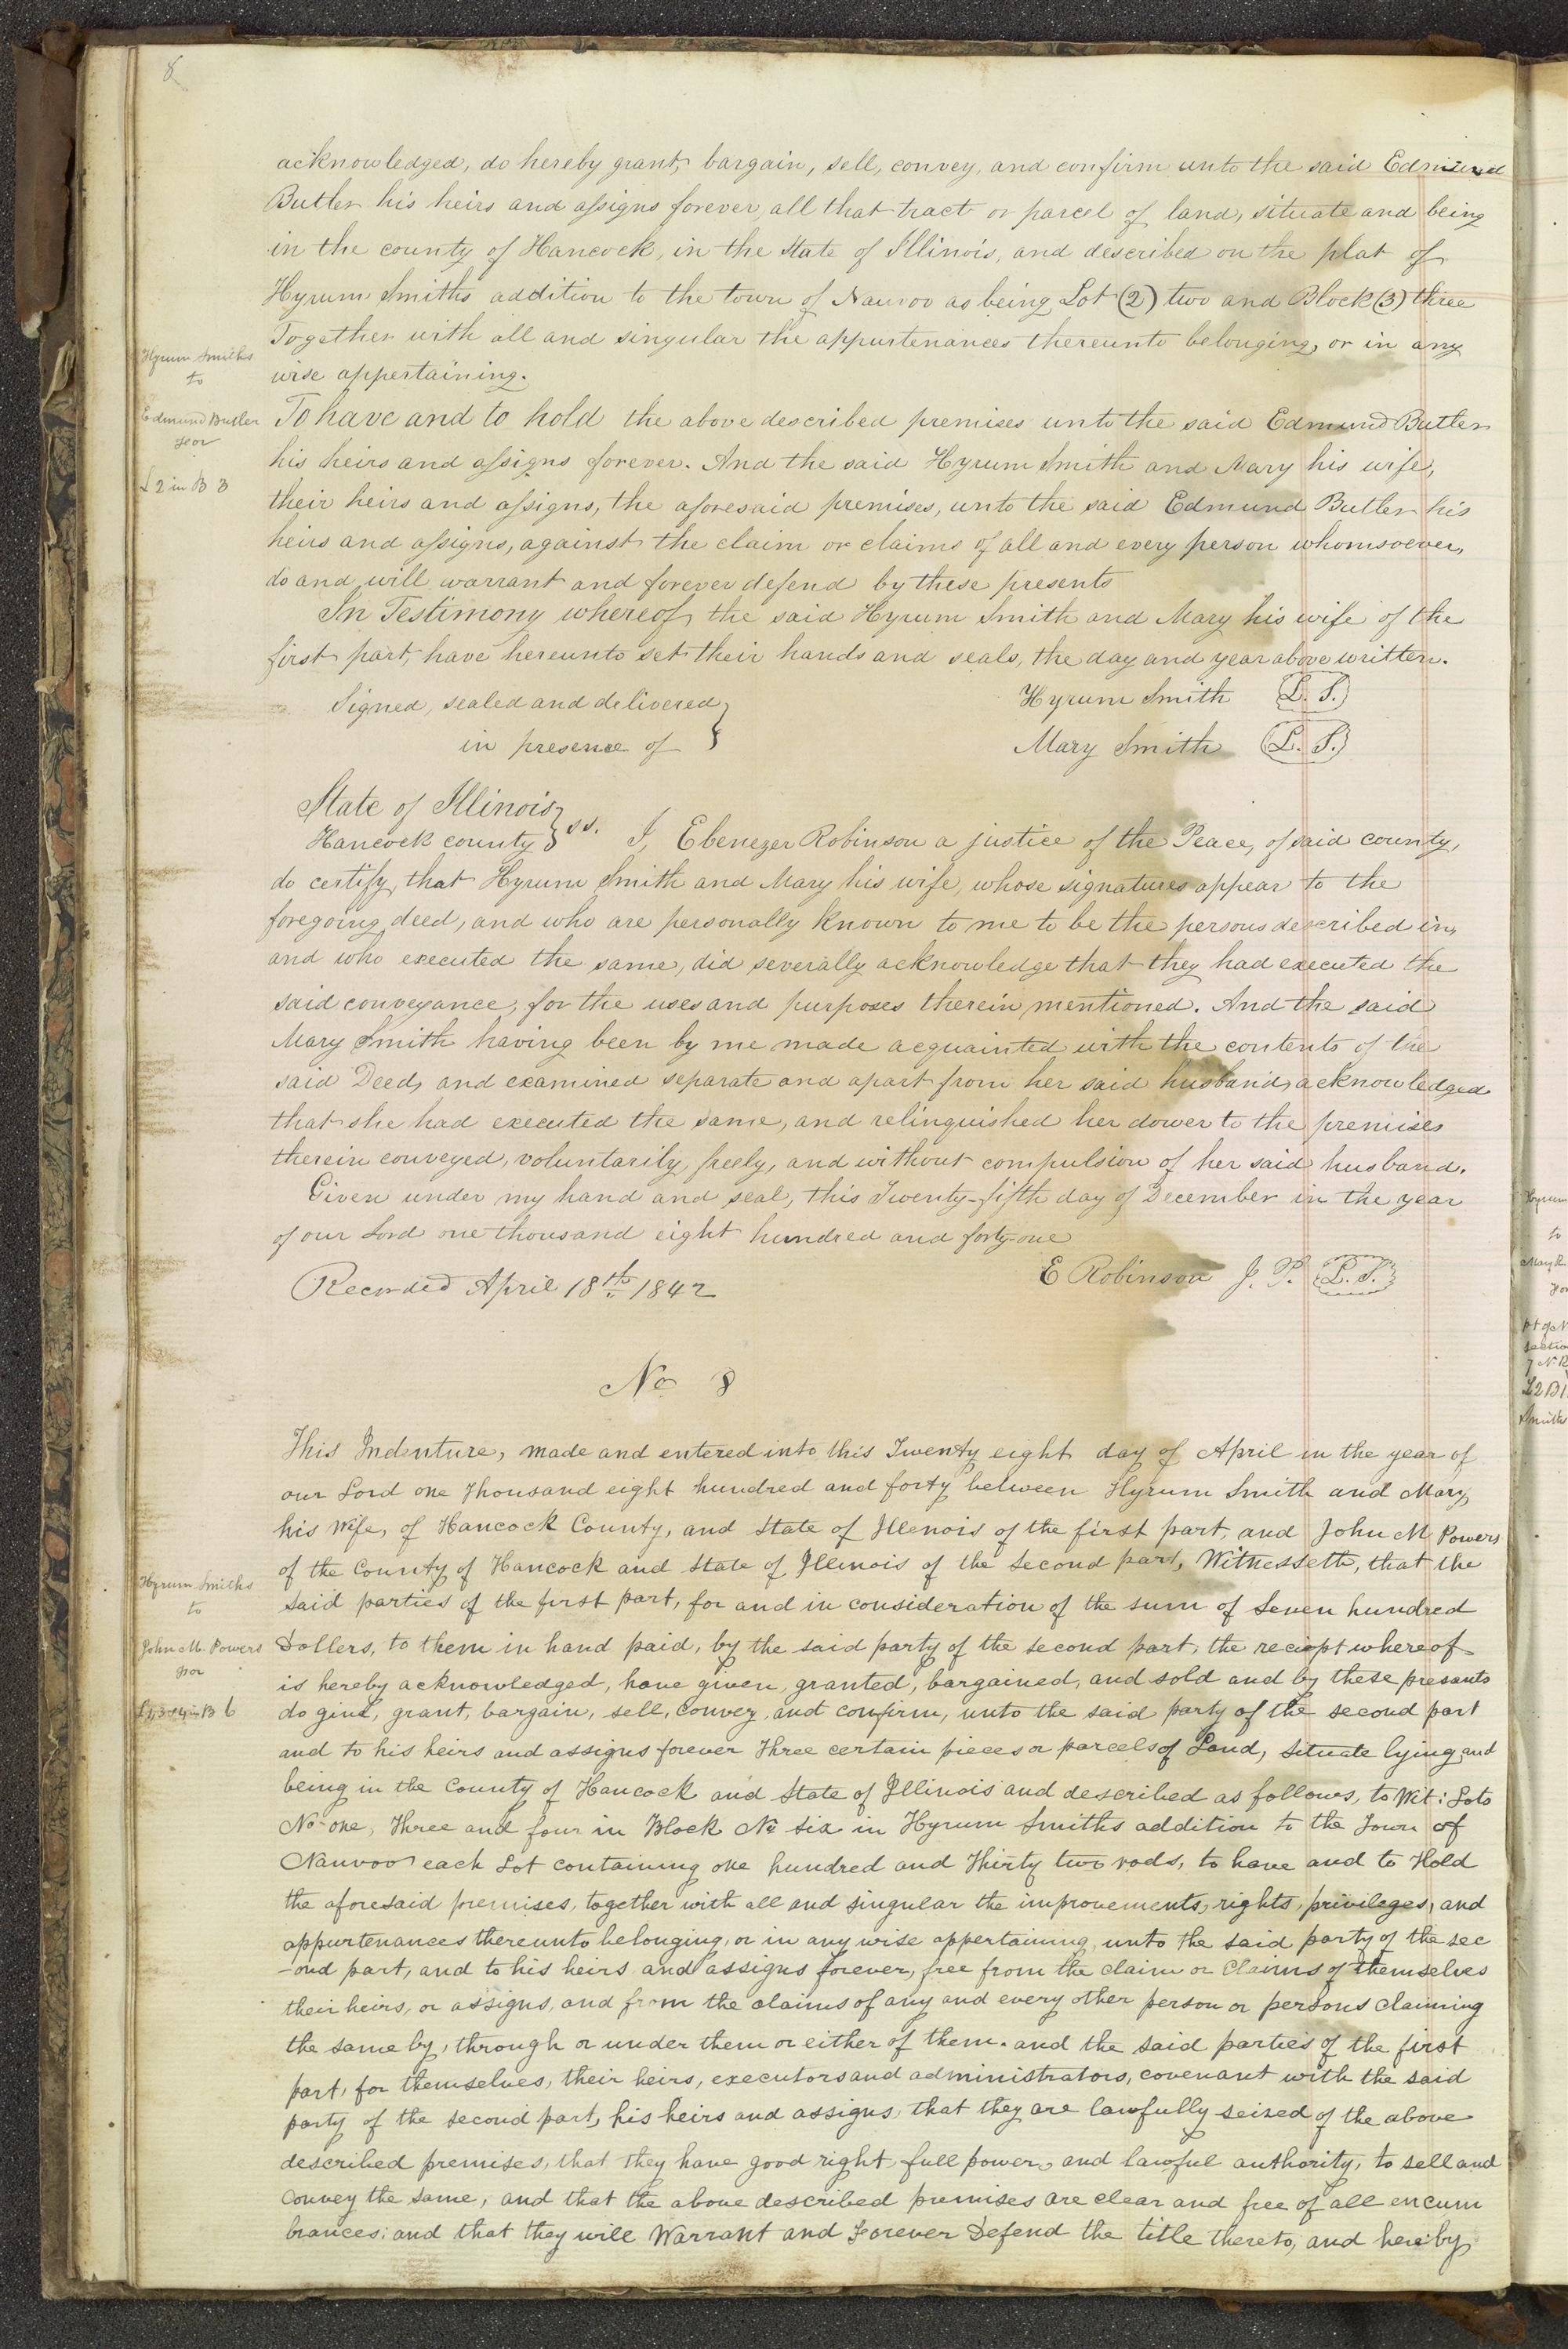 8
acknowledged, do hereby grant, bargain, sell, convey, and confirm unto the said Edmund
Butler his heirs and assigns forever, all that tract or parcel of land, situate and being
in the county of Hancock, in the State of Illinois, and described on the plat of
Hyrum Smiths addition to the town of Nauvoo as being Lot (2) two and Block (3) three
Together with all and singular the appurtenances thereunto belonging, or in any
wise appertaining.
Hyrum Smiths
to
Edmund Butler
L 2 in B 3
To have and to hold the above described premises unto the said Edmund Butler
his heirs and assigns forever. And the said Hyrum Smith and Mary his wife,
their heirs and assigns, the aforesaid premises, unto the said Edmund Butler his
heirs and assigns, against the claim or claims of all and every person whomsoever,
do and will warrant and forever defend by these presents
In Testimony whereof, the said Hyrum Smith and Mary his wife of the
first part, have hereunto set their hands and seals, the day and year above written.
Signed, sealed and delivered } Hyrum Smith (L. S.)
in presence of } Mary Smith (L. S.)
State of Illinois }
Hancock county } ss. I, Ebenezer Robinson a justice of the Peace, of said county,
do certify, that Hyrum Smith and Mary his wife, whose signatures appear to the
foregoing deed, and who are personally known to me to be the persons described in,
and who executed the same, did severally acknowledge that they had executed the
said conveyance, for the uses and purposes therein mentioned. And the said
Mary Smith having been by me made acquainted with the contents of the
said Deed, and examined separate and apart from her said husband, acknowledged
that she had executed the same, and relinquished her dower to the premises
therein conveyed, voluntarily, freely, and without compulsion of her said husband.
Given under my hand and seal, this Twenty-fifth day of December in the year
of our Lord one thousand eight hundred and forty-one
E Robinson J. P. (L. S.)
Recorded April 18th 1842
No 8
This Indenture, made and entered into this Twenty eight day of April in the year of
our Lord one Thousand eight hundred and forty between Hyrum Smith and Mary,
his Wife, of Hancock County, and State of Illenois of the first part, and John M Powers
of the County of Hancock and State of Illenois of the Second part, Witnesseth, that the
Said parties of the first part, for and in consideration of the sum of Seven hundred
Hyrum Smiths
to
John M. Powers
L 1,3 & 4 in B 6
Dollers, to them in hand paid, by the said party of the second part, the reciept whereof
is hereby acknowledged, have given, granted, bargained, and sold and by these presants
do give, grant, bargain, sell, convey, and confirm, unto the said party of the second part
and to his heirs and assigns forever Three certain pieces or parcels of Land, Situate lying and
being in the County of Hancock and State of Illinois and described as follows, to Wit: Lots
No one, Three and four in Block No Six in Hyrum Smiths addition to the Town of
Nauvoo each Lot containing one hundred and Thirty two rods, to have and to Hold
the aforesaid premises, together with all and singular the improvements, rights, privileges, and
appurtenances thereunto belonging, or in any wise appertaining, unto the said party of the sec
-ond part, and to his heirs and assigns forever, free from the claim or Claims of themselves
their heirs, or assigns, and from the claims of any and every other person or persons claiming
the same by, through or under them or either of them. and the said parties of the first
part, for themselves, their heirs, executors and administrators, covenant with the said
party of the second part, his heirs and assigns, that they are lawfully seized of the above
described premises, that they have good right, full power, and lawful authority, to sell and
Convey the same, and that the above described premises are clear and free of all encum
brances; and that they will Warrant and Forever Defend the title thereto, and hereby